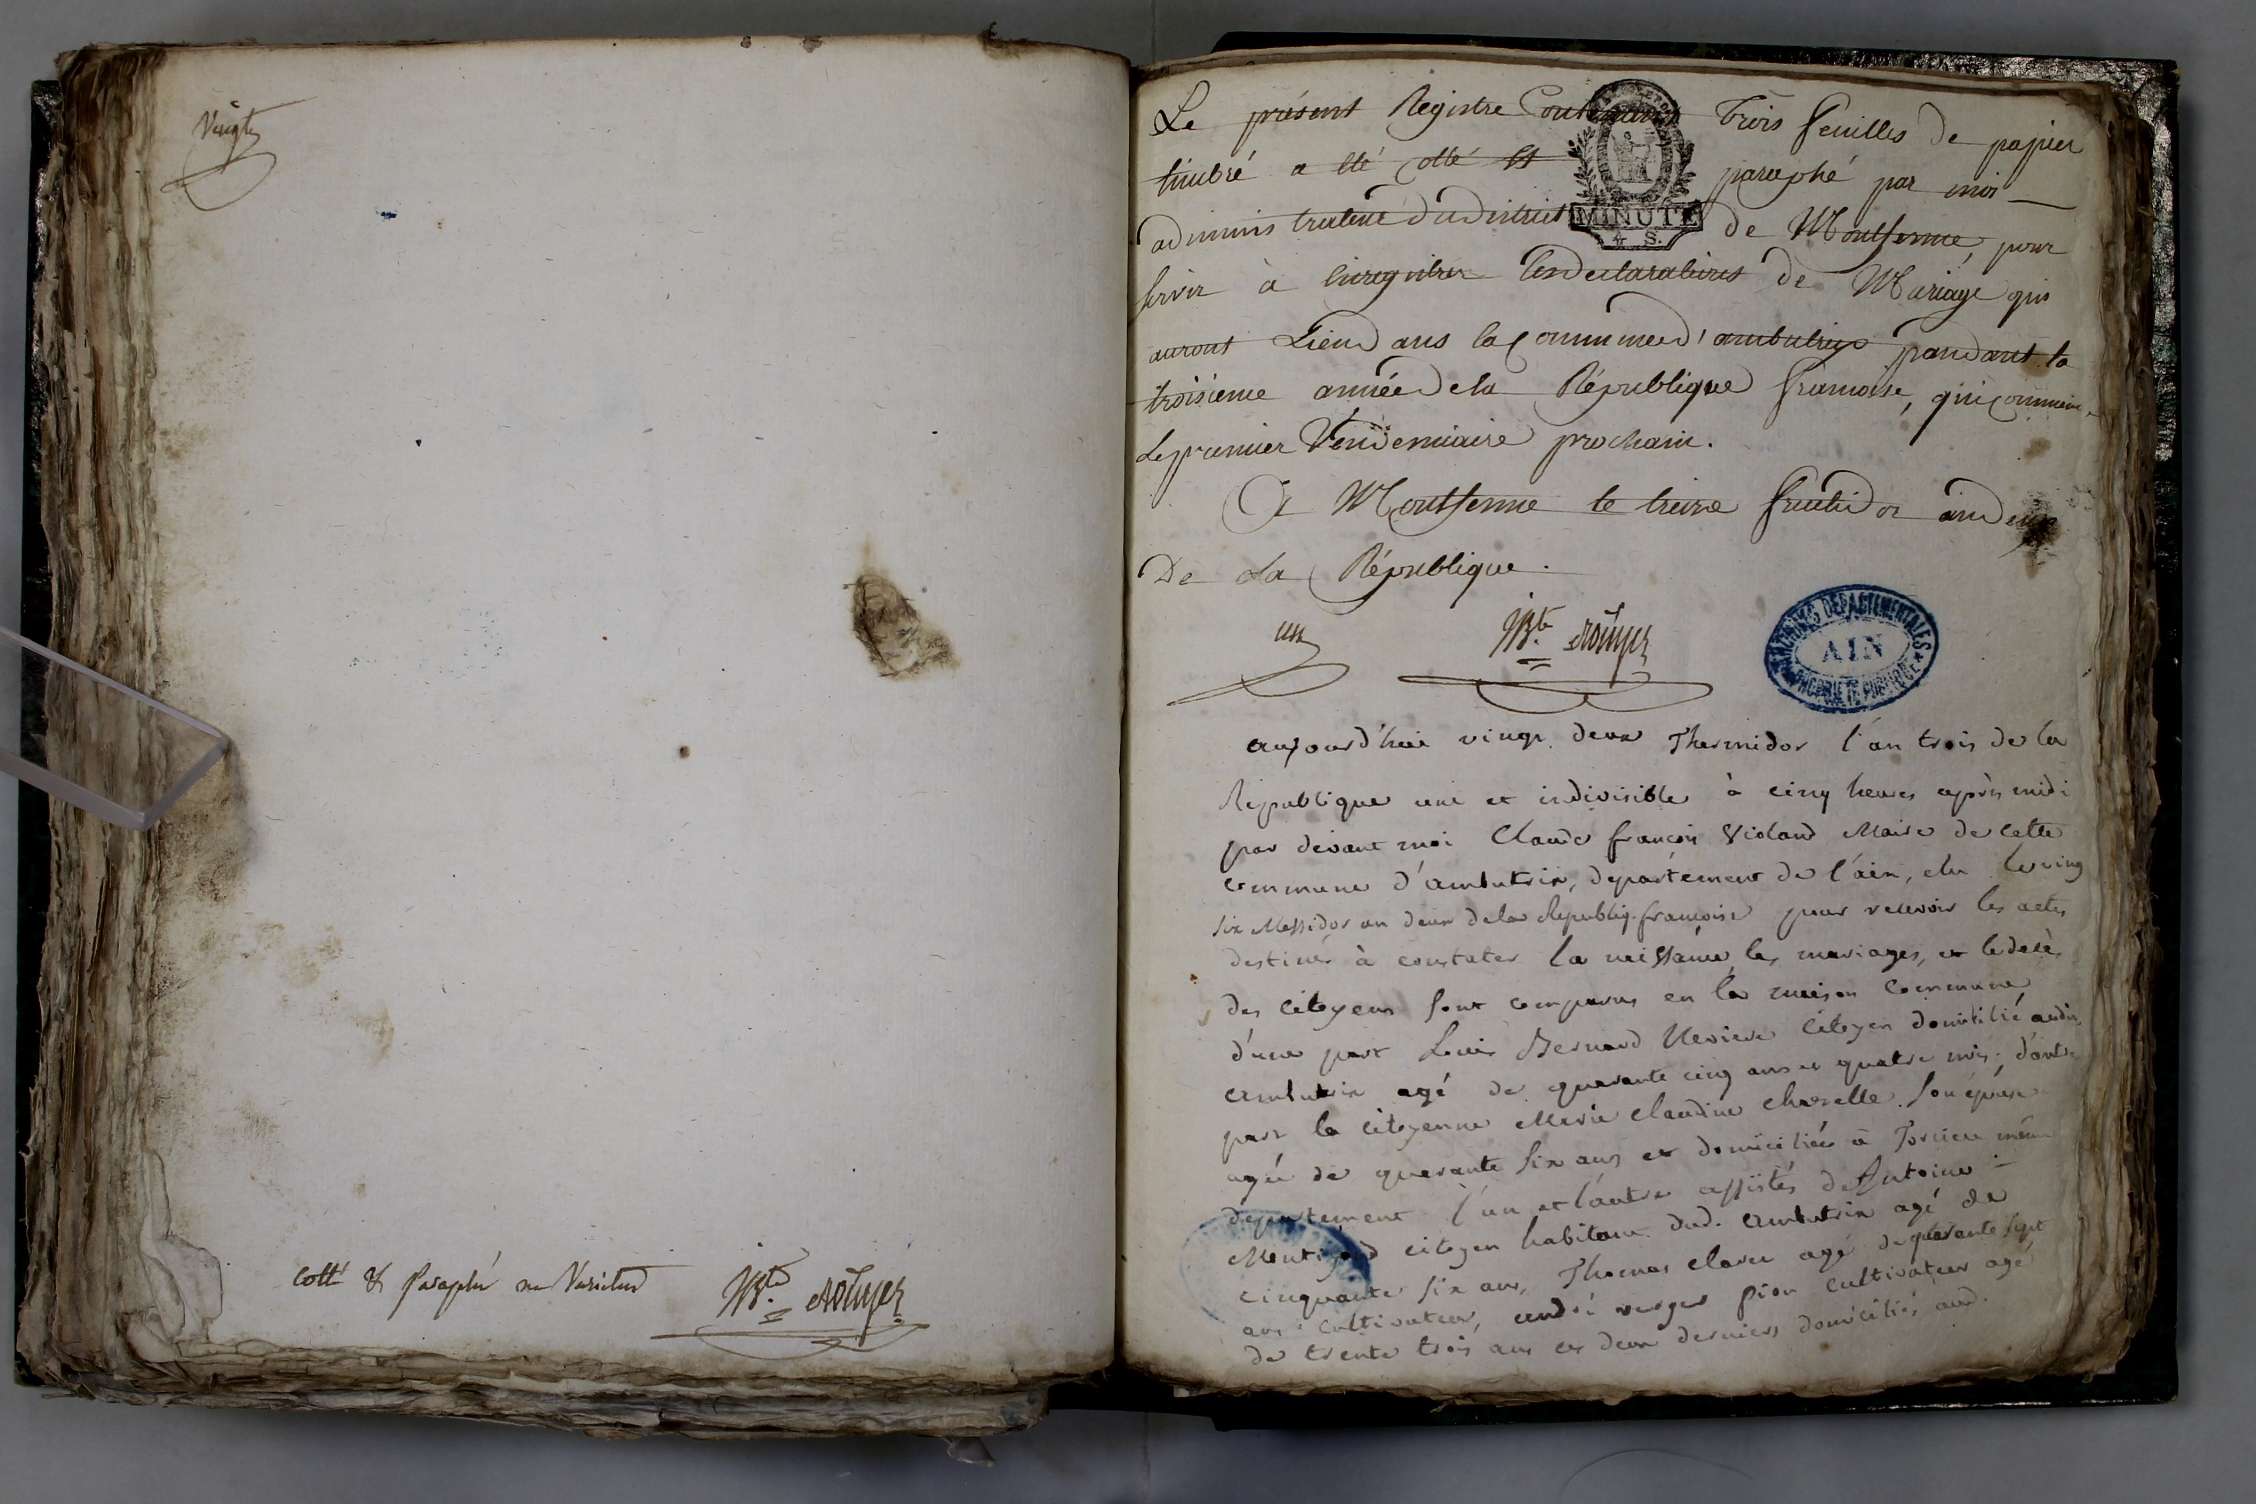 Vingt
cotté & Paraphé ne Varietur
Bte Roüyer
Le présent Registre Contenant Trois feuilles de papier
timbré a été cotté et paraphé par moi
administrateur du district de Montferme, pour
servir à Enregistrer les declarations de Mariage qui
auront Lieu dans la Commune d'ambutrix pandant la
troisième année de la République francoise, qui commence
Le premier Vendemiaire prochain.
A Montferme le treize fructidor an deux
De La République.
un
Bte Roüyer
MINUTE
4 S.
ARCHIVES DEPARTEMENTALES
AIN
PROPRIETE PUBLIQUE
aujourd'hui vingt deux Thermidor l'an trois de la
Republique une et indivisible à cinq heures après midi
par devant moi Claude françois Violand Maire de cette
commune d'ambutrix, departement de l'ain, elu le ving
six Messidor an deux de la Republiq. francoise pour recevoir les actes
destinés à constater la naissance, les mariages, et le décès
des citoyens sont comparus en la maison Commune
d'une part Louis Bernard citoyen domicilié audit
ambutrix agé de quarante cinq ans et quatre mois; d'autre
part la citoyenne Marie Claudine son épouse
agée de quarante six ans et domiciliée à Torcieu même
departement l'un et l'autre assistés de Antoine
citoyen habitant dud. ambutrix agé de
cinquante six ans, Thomas agé de quarante sept
ans cultivateur, andré verger pion cultivateur agé
de trente trois ans les deux derniers domiciliés aud.